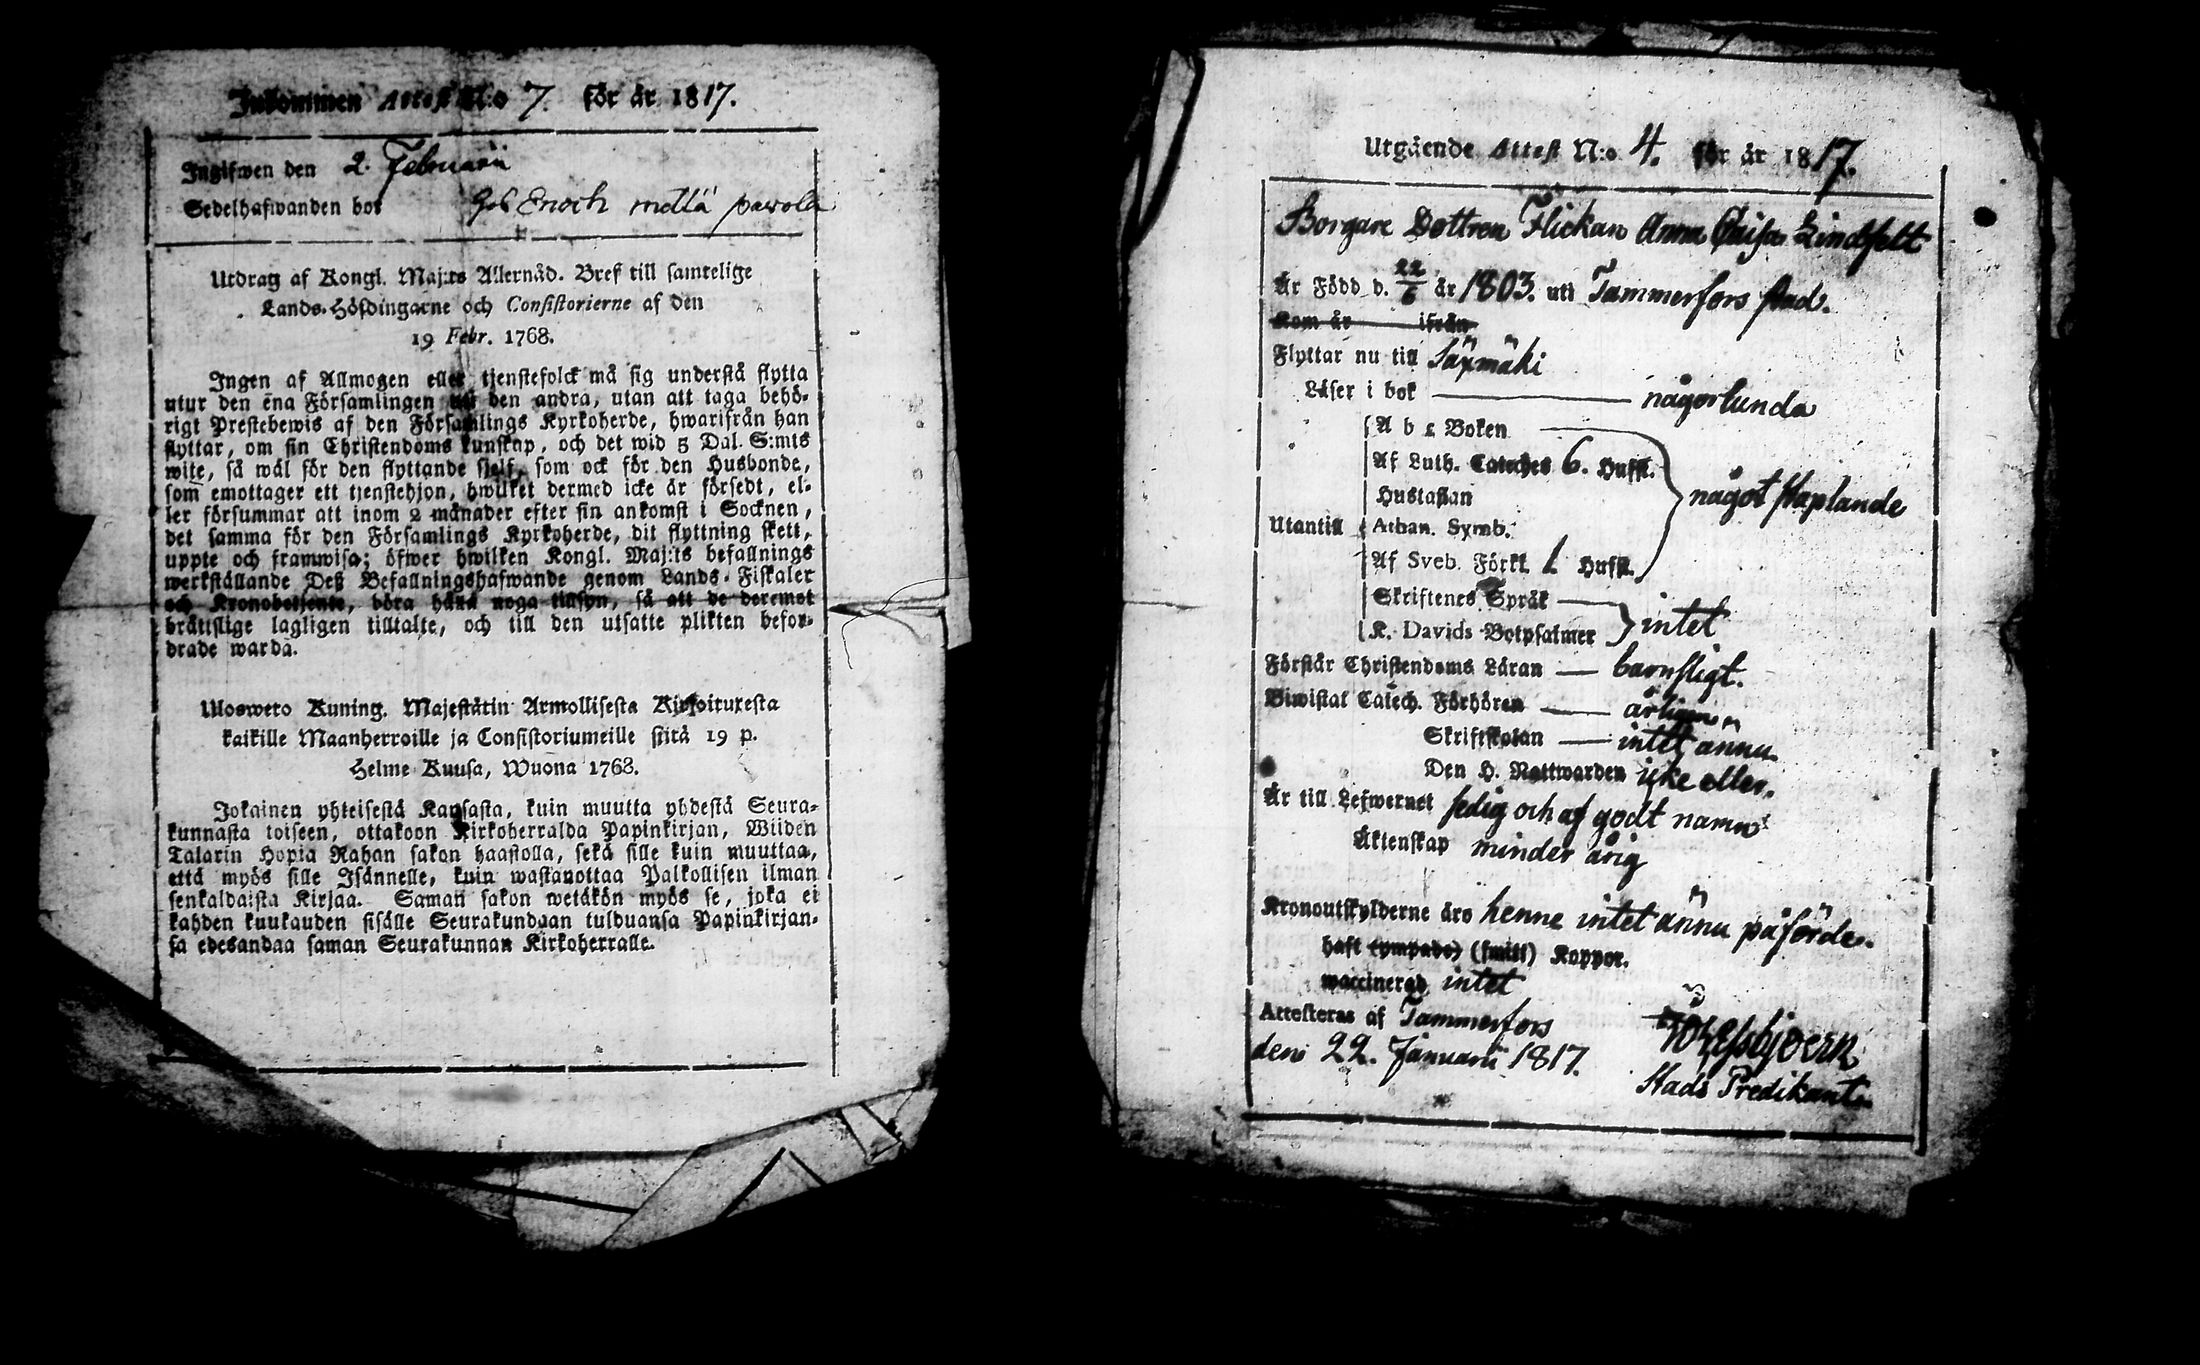 Inkommen Attest N:o 7. för år 1817.
Ingifwen den 2. Februarii
Sedelhafwanden bor hos Enoch
Utdrag af Kongl. Maj:ts Allernåd. Bref till samtelige
Lands-Höfdingarne och Consistorierne af den
19 Febr. 1768.
Ingen af Allmogen eller tjenstefolck må sig understå flytta
utur den ena Församlingen uti den andra, utan att taga behö-
rigt Prestebewis af den Församlings Kyrkoherde, hwarifrån han
flyttar, om sin Christendoms kunskap, och det wid 5 Dal. S:mts
wite, så wäl för den flyttande sjelf, som ock för den Husbonde,
som emottager ett tjenstehjon, hwilket dermed icke är försedt, el-
ler försummar att inom 2 månader efter sin ankomst i Socknen,
det samma för den Församlings Kyrkoherde, dit flyttning skett,
uppte och framwisa; öfwer hwilken Kongl. Maj:ts befallnings
werkställande Deß Befallningshafwande genom Lands-Fiskaler
och Kronobetjente, böra hafwa noga tillsyn, så att de deremot
bråttslige lagligen tilltalte, och till den utsatte plikten befor-
drade warda.
Uloswето Kuning. Majestätin Armollisesta Kirjoituxesta
kaikille Maanherroille ja Consistoriumeille siitä 19 p.
Helme Kuusa, Wuona 1768.
Jokainen yhteisestä Kansasta, kuin muutta yhdestä Seura-
kunnasta toiseen, ottakoon Kirkoherralda Papinkirjan, Wiiden
Talarin Hopia Rahan sakon haastolla, sekä sille kuin muuttaa,
että myös sille Isännelle, kuin wastanottaa Palkollisen ilman
senkaldaista Kirjaa. Saman sakon wetäkön myös se, joka ei
kahden kuukauden sisälle Seurakundaan tulduansa Papinkirjan-
sa edesandaa saman Seurakunnan Kirkoherralle.
Utgående Attest N:o 4. för år 1817.
Borgare Dottren Flickan Anna Caisa Lindfelt
Är Född d. 22/6 år 1803. uti Tammerfors stad.
Kom år ifrån
Flyttar nu till Säxmäki
Läser i bok någorlunda
A b c Boken
Af Luth. Cateches 6. Hufst.
Hustaflan
Utantill Athan. Symb. något staplande
Af Sveb. Förkl. 1. Hufst.
Skriftenes Språk
K. Davids Botpsalmer intet
Förstår Christendoms Läran barnsligt.
Biwistat Catech. Förhören årligen
Skriftskolan intet ännu
Den H. Nattwarden icke eller.
Är till Lefwernet sedig och af godt namn
Äktenskap minder årig
Kronoutskylderne äro henne intet ännu påförde.
haft (ympade) (smitt) Koppor.
waccinerad intet
Attesteras af Tammerfors
den 22. Januarii 1817.
Stads Predikant.